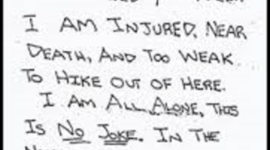 I AM INJURED, NEAR
DEATH, AND TOO WEAK
TO HIKE OUT OF HERE.
I AM ALL ALONE, THIS
IS NO JOKE. IN THE